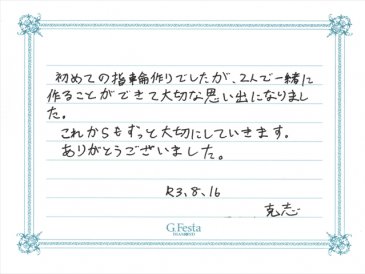 初めての指輪作りでしたが、2人で一緒に
作ることができて大切な思い出になりまし
た。
これからもずっと大切にしていきます。
ありがとうございました。
R3.8.16
克志
G.Festa